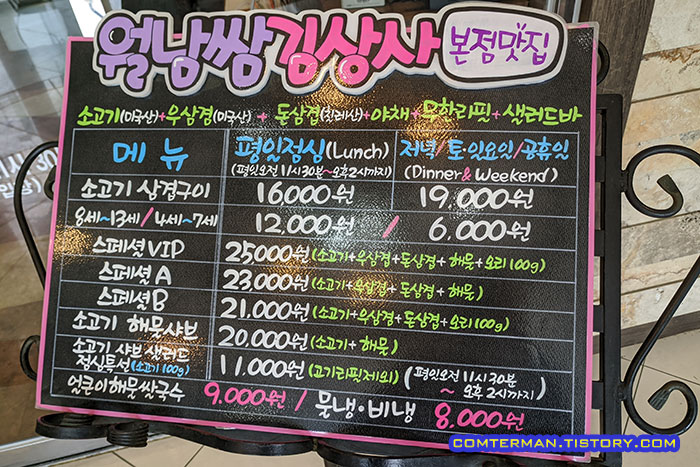 월남쌈김상사 본점맛집
소고기(미국산)+우삼겹(미국산) + 돈삼겹(칠레산)+야채+무한리핏+샐러드바
메뉴 평일점심(Lunch) 저녁/토·일요일/공휴일
(평일오전 11시30분~오후2시까지) (Dinner & Weekend)
소고기 삼겹구이 16,000원 19,000원
8세~13세/4세~7세 12,000원 / 6,000원
스페셜VIP 25000원(소고기+우삼겹+돈삼겹+해물+오리100g)
스페셜A 23,000원(소고기+우삼겹+돈삼겹+해물)
스페셜B 21,000원(소고기+우삼겹+돈삼겹+오리100g)
소고기 해물샤브 20,000원(소고기+해물)
소고기 샤브 샐러드
점심특선(소고기100g) 11,000원(고기리핏제외) (평일오전 11시30분
~오후 2시까지)
얼큰이해물쌀국수 9,000원 / 물냉·비냉 8,000원
COMTERMAN.TISTORY.COM